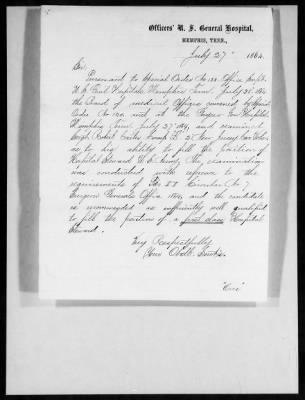 Officers' U. S. General Hospital,
MEMPHIS, TENN.,
July 27" 1864.
Sir
Pursuant to Special Orders No 133 Office Supt.
U.S. Genl Hospitals Memphis Tenn July 25" 1864
the Board of medical Officers convened by Special
Orders No 120 met at the Hospital
Memphis Tenn July 27" 1864, and examined
Robert Comp.
as to his ability to fill the position of
Hospital Steward U. S. Army. The examination
was conducted with reference to the
requirements of Par II Circular No 7
Surgeon Generals Office 1864, and the candidate
is recommended as sufficiently well qualified
to fill the position of a first class Hospital
Steward.
Very Respectfully
Your Obdt. Servts.
"Over"